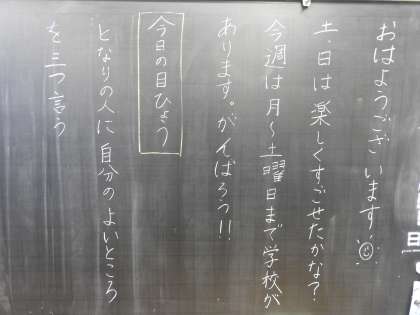 おはようございます!
土日は楽しくすごせたかな?
今週は月〜土曜日まで学校が
あります。がんばろう!!
今日の目ひょう
となりの人に自分のよいところ
を三つ言う